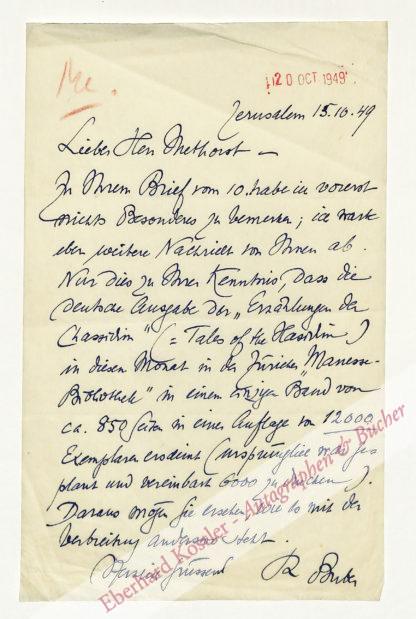 20 OCT 1949
Jerusalem 15.10.49
Lieber Herr Methorst –
Zu Ihrem Brief vom 10. habe ich vorerst
nichts Besonderes zu bemerken; ich warte
eben weitere Nachricht von Ihnen ab.
Nur dies zu Ihrer Kenntnis, dass die
deutsche Ausgabe der „Erzählungen der
Chassidim" (= Tales of the Hasidim)
in diesem Monat in der Züricher „Manesse-
Bibliothek" in einem einzigen Band von
ca. 850 Seiten in einer Auflage von 12000
Exemplaren erscheint (ursprünglich war ge-
plant und vereinbart 6000 zu drucken).
Daraus mögen Sie ersehen wie es mit der
Verbreitung anderswo steht.
grüssend
Buber
Eberhard Köstler - Autographen & Bücher